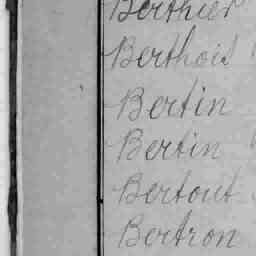 Berthier
Berthois
Bertin
Bertin
Bertout
Bertron